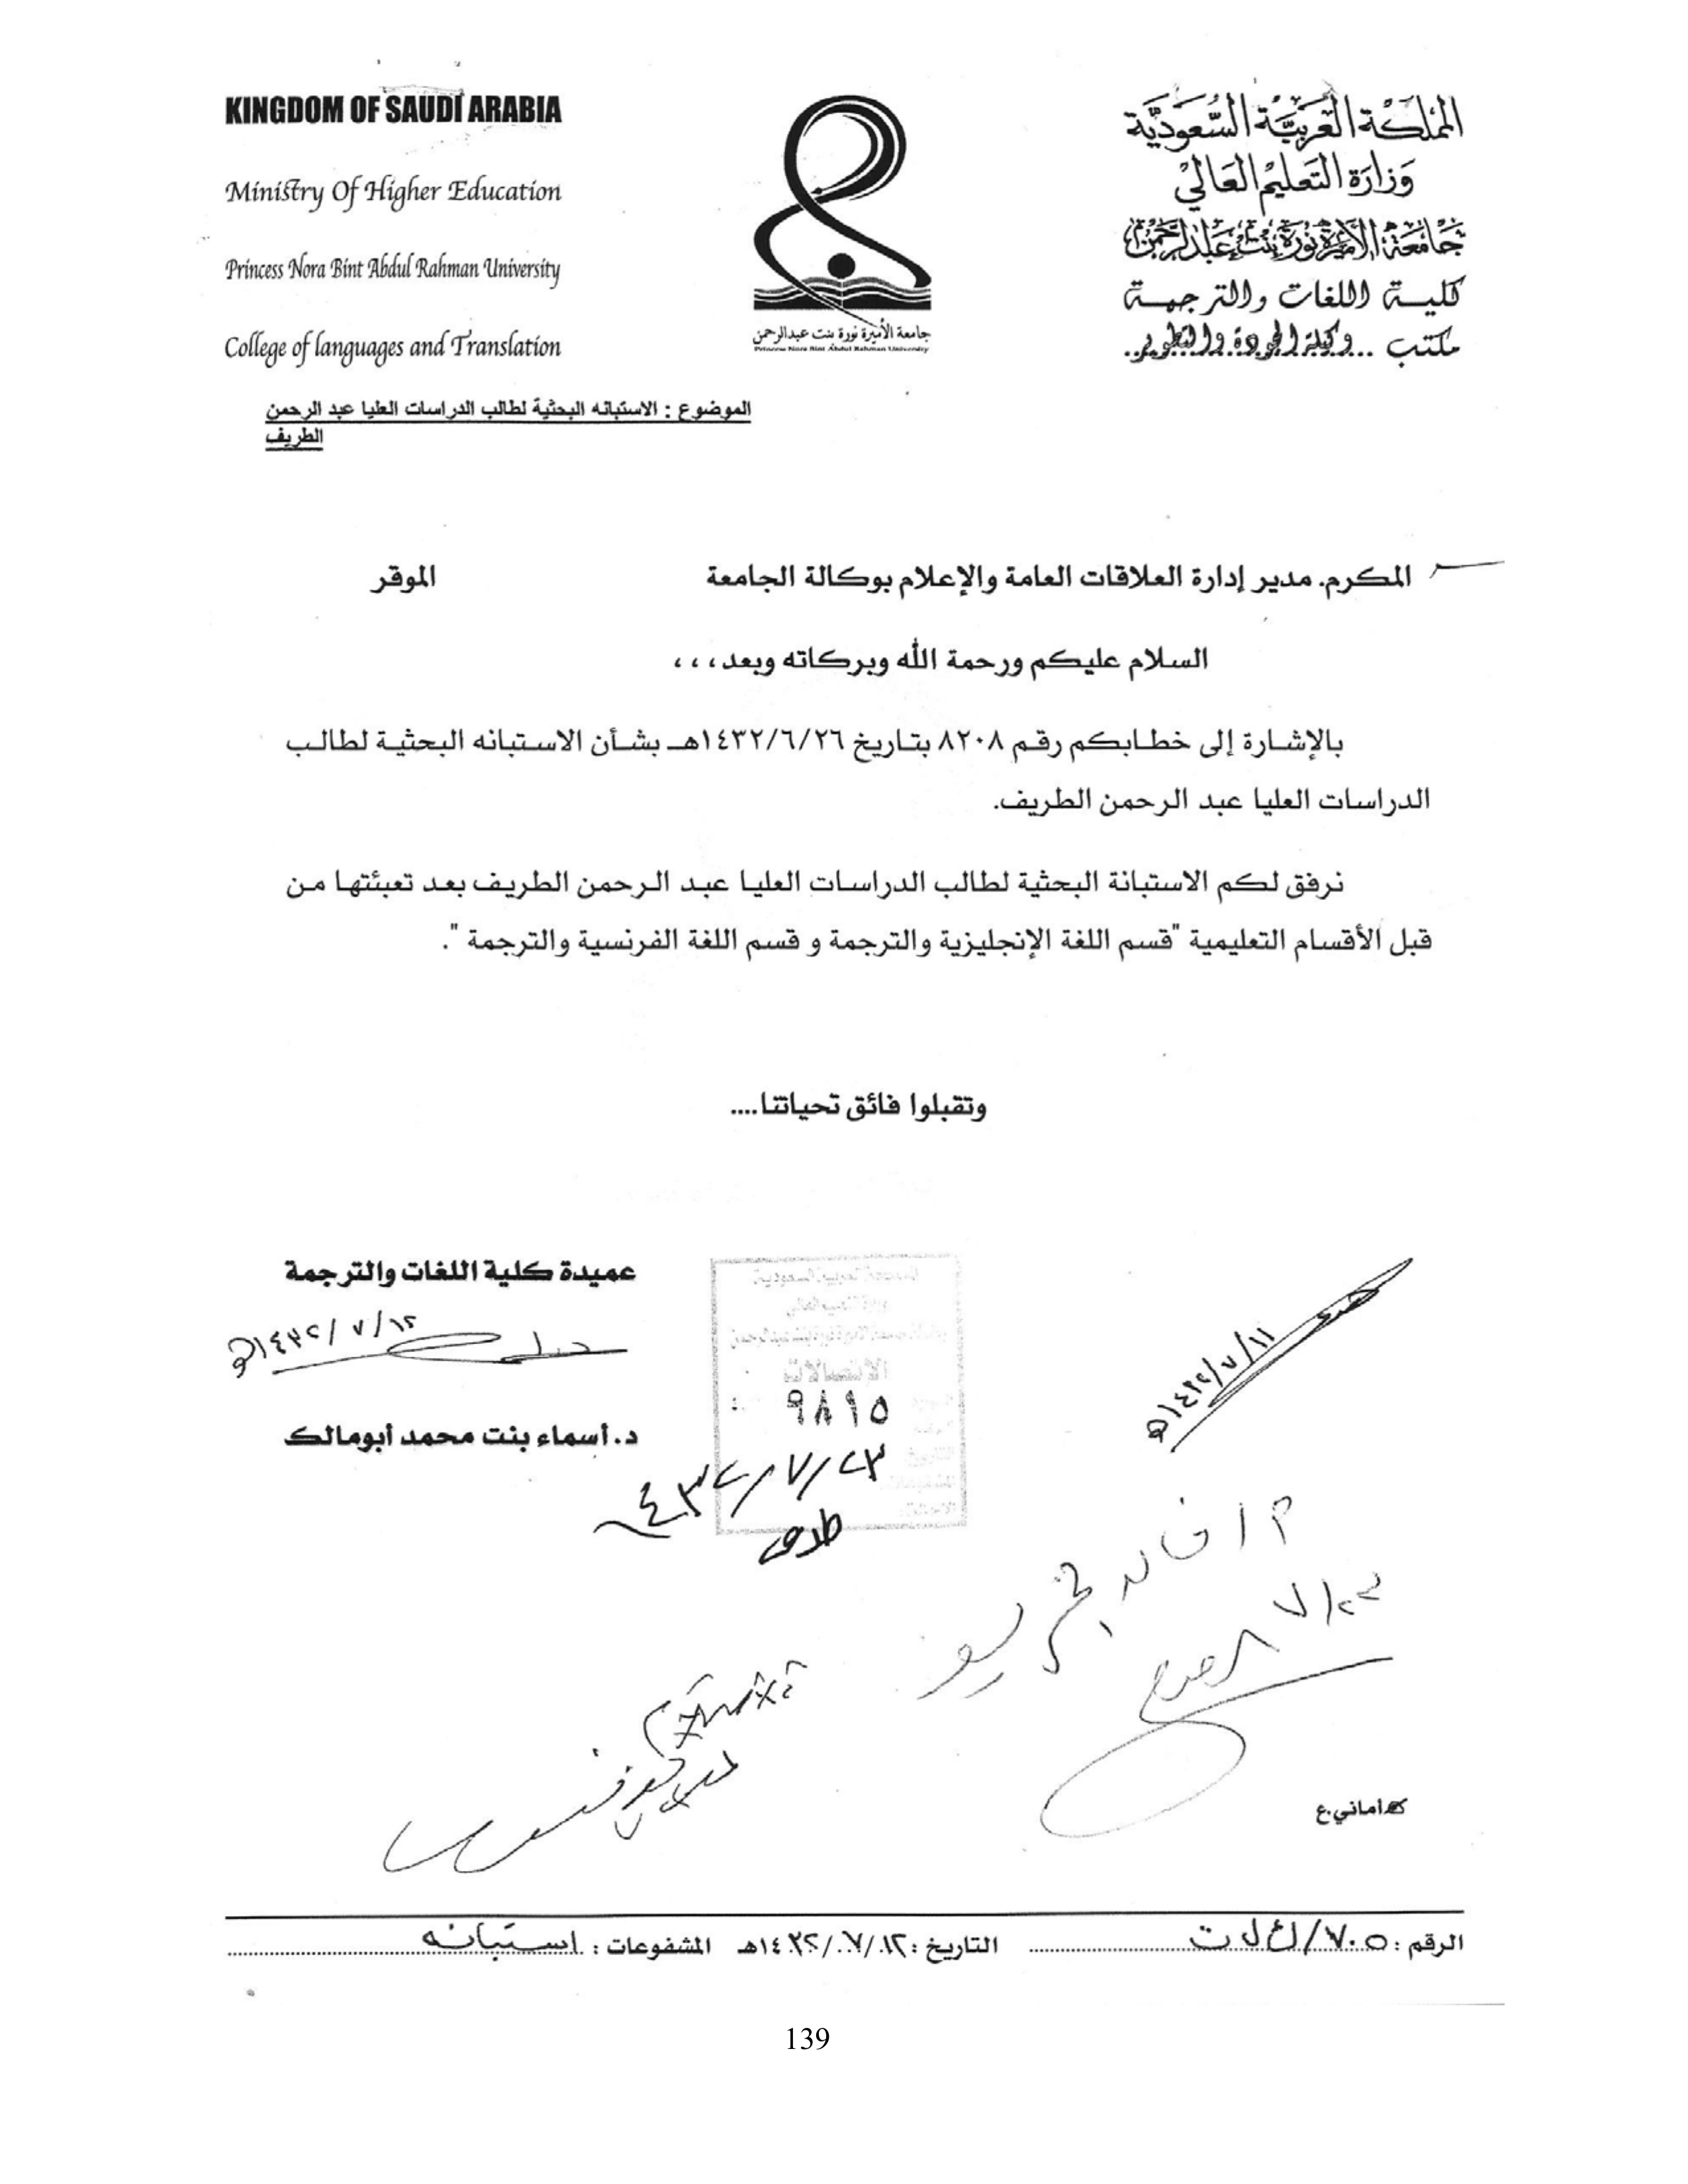 KINGDOM OF SAUDI ARABIA
Ministry Of Higher Education
Princess Nora Bint Abdul Rahman University
College of languages and Translation
جامعة الأميرة نورة بنت عبدالرحمن
Princess Nora Bint Abdul Rahman University
المملكة العربية السعودية
وزارة التعليم العالي
جامعة الأميرة نورة بنت عبدالرحمن
كلية اللغات والترجمة
مكتب ...وكيلة الجودة والتطوير..
الموضوع : الاستبانه البحثية لطالب الدراسات العليا عبد الرحمن
الطريف
المكرم. مدير إدارة العلاقات العامة والإعلام بوكالة الجامعة الموقر
السلام عليكم ورحمة الله وبركاته وبعد،،،
بالإشارة إلى خطابكم رقم ٨٢٠٨ بتاريخ ١٤٣٢/٦/٢٦هـ بشأن الاستبانه البحثية لطالب
الدراسات العليا عبد الرحمن الطريف.
نرفق لكم الاستبانة البحثية لطالب الدراسات العليا عبد الرحمن الطريف بعد تعبئتها من
قبل الأقسام التعليمية "قسم اللغة الإنجليزية والترجمة و قسم اللغة الفرنسية والترجمة ".
وتقبلوا فائق تحياتنا....
عميدة كلية اللغات والترجمة
١٤٣٢/٧/١٢هـ
د. أسماء بنت محمد أبومالك
الاتصالات
٩٨١٥
١٤٣٢/٧/٢٣
١٤٣٢/٧/١١هـ
٧/٢٣
أماني.ع
الرقم : ٧٠٥/ك ل ت التاريخ : ١٤٣٢/٠٧/١٢هـ المشفوعات : استبانه
139